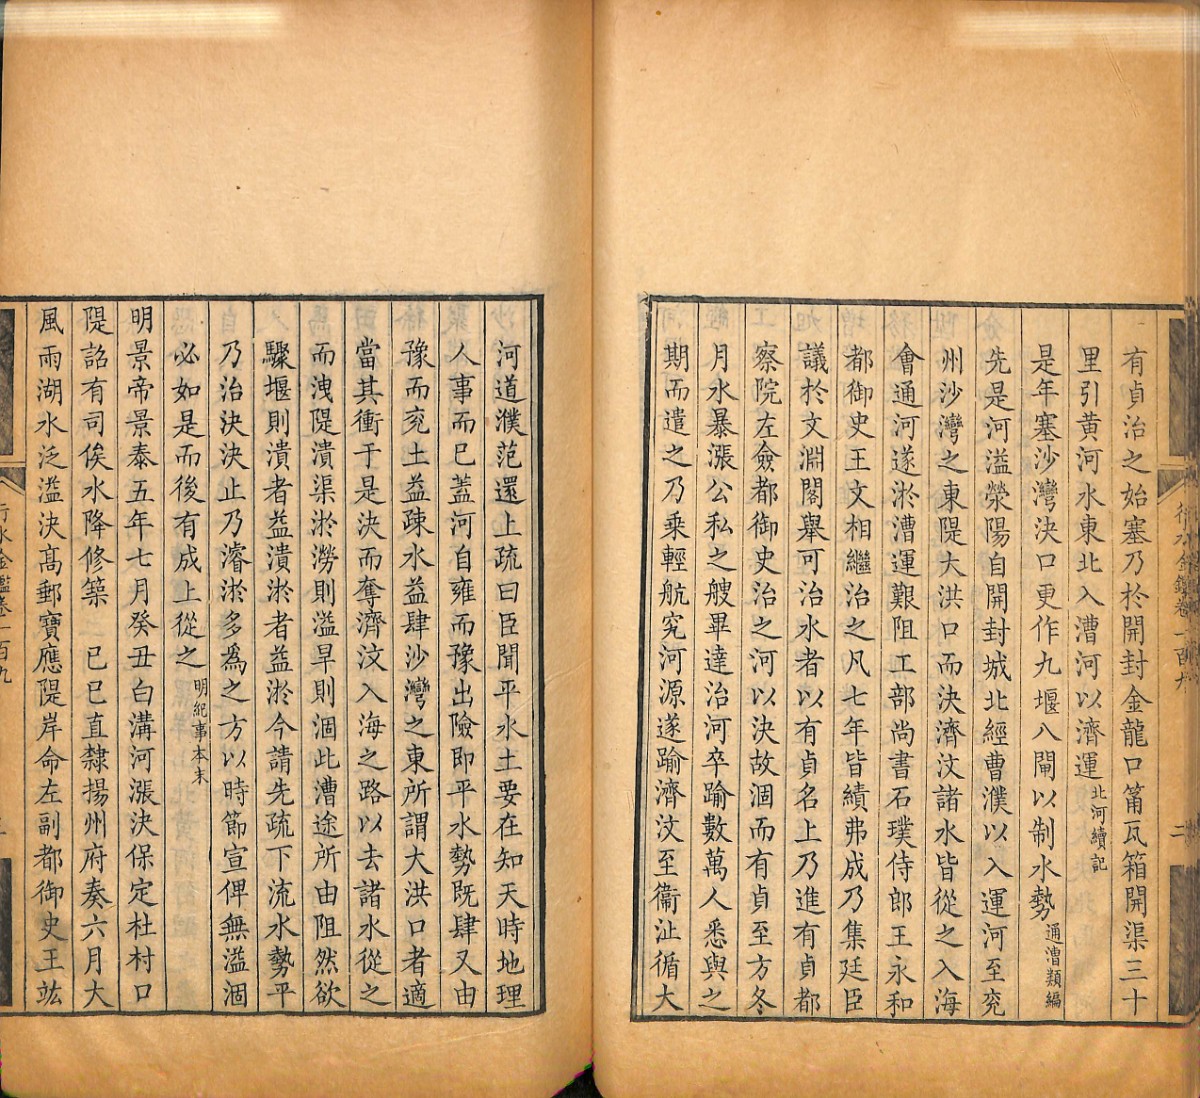 有貞治之始塞乃於開封金龍口筩瓦箱開渠三十
里引黄河水東北入漕河以濟運北河續記
是年塞沙灣決口更作九堰八閘以制水勢通漕類編
先是河溢滎陽自開封城北經曹濮以入運河至兖
州沙灣之東隄大洪口而決濟汶諸水皆從之入海
會通河遂淤漕運艱阻工部尚書石璞侍郎王永和
都御史王文相繼治之凡七年皆績弗成乃集廷臣
議於文淵閣舉可治水者以有貞名上乃進有貞都
察院左僉都御史治之河以決故涸而有貞至方冬
月水暴漲公私之艘畢達治河卒踰數萬人悉與之
期而遣之乃乘輕航究河源遂踰濟汶至衞沚循大
行水金鑑卷一百九
二
河道濮范還上疏曰臣聞平水土要在知天時地理
人事而已蓋河自雍而豫出險即平水勢既肆又由
豫而兖土益疎水益肆沙灣之東所謂大洪口者適
當其衝于是決而奪濟汶入海之路以去諸水從之
而洩隄潰渠淤澇則溢旱則涸此漕途所由阻然欲
驟堰則潰者益潰淤者益淤今請先疏下流水勢平
乃治決決止乃濬淤多為之方以時節宣俾無溢涸
必如是而後有成上從之明紀事本末
明景帝景泰五年七月癸丑白溝河漲決保定杜村口
隄詔有司俟水降修築 己巳直隸揚州府奏六月大
風雨湖水泛溢決髙郵寶應隄岸命左副都御史王竑
行水金鑑卷一百九